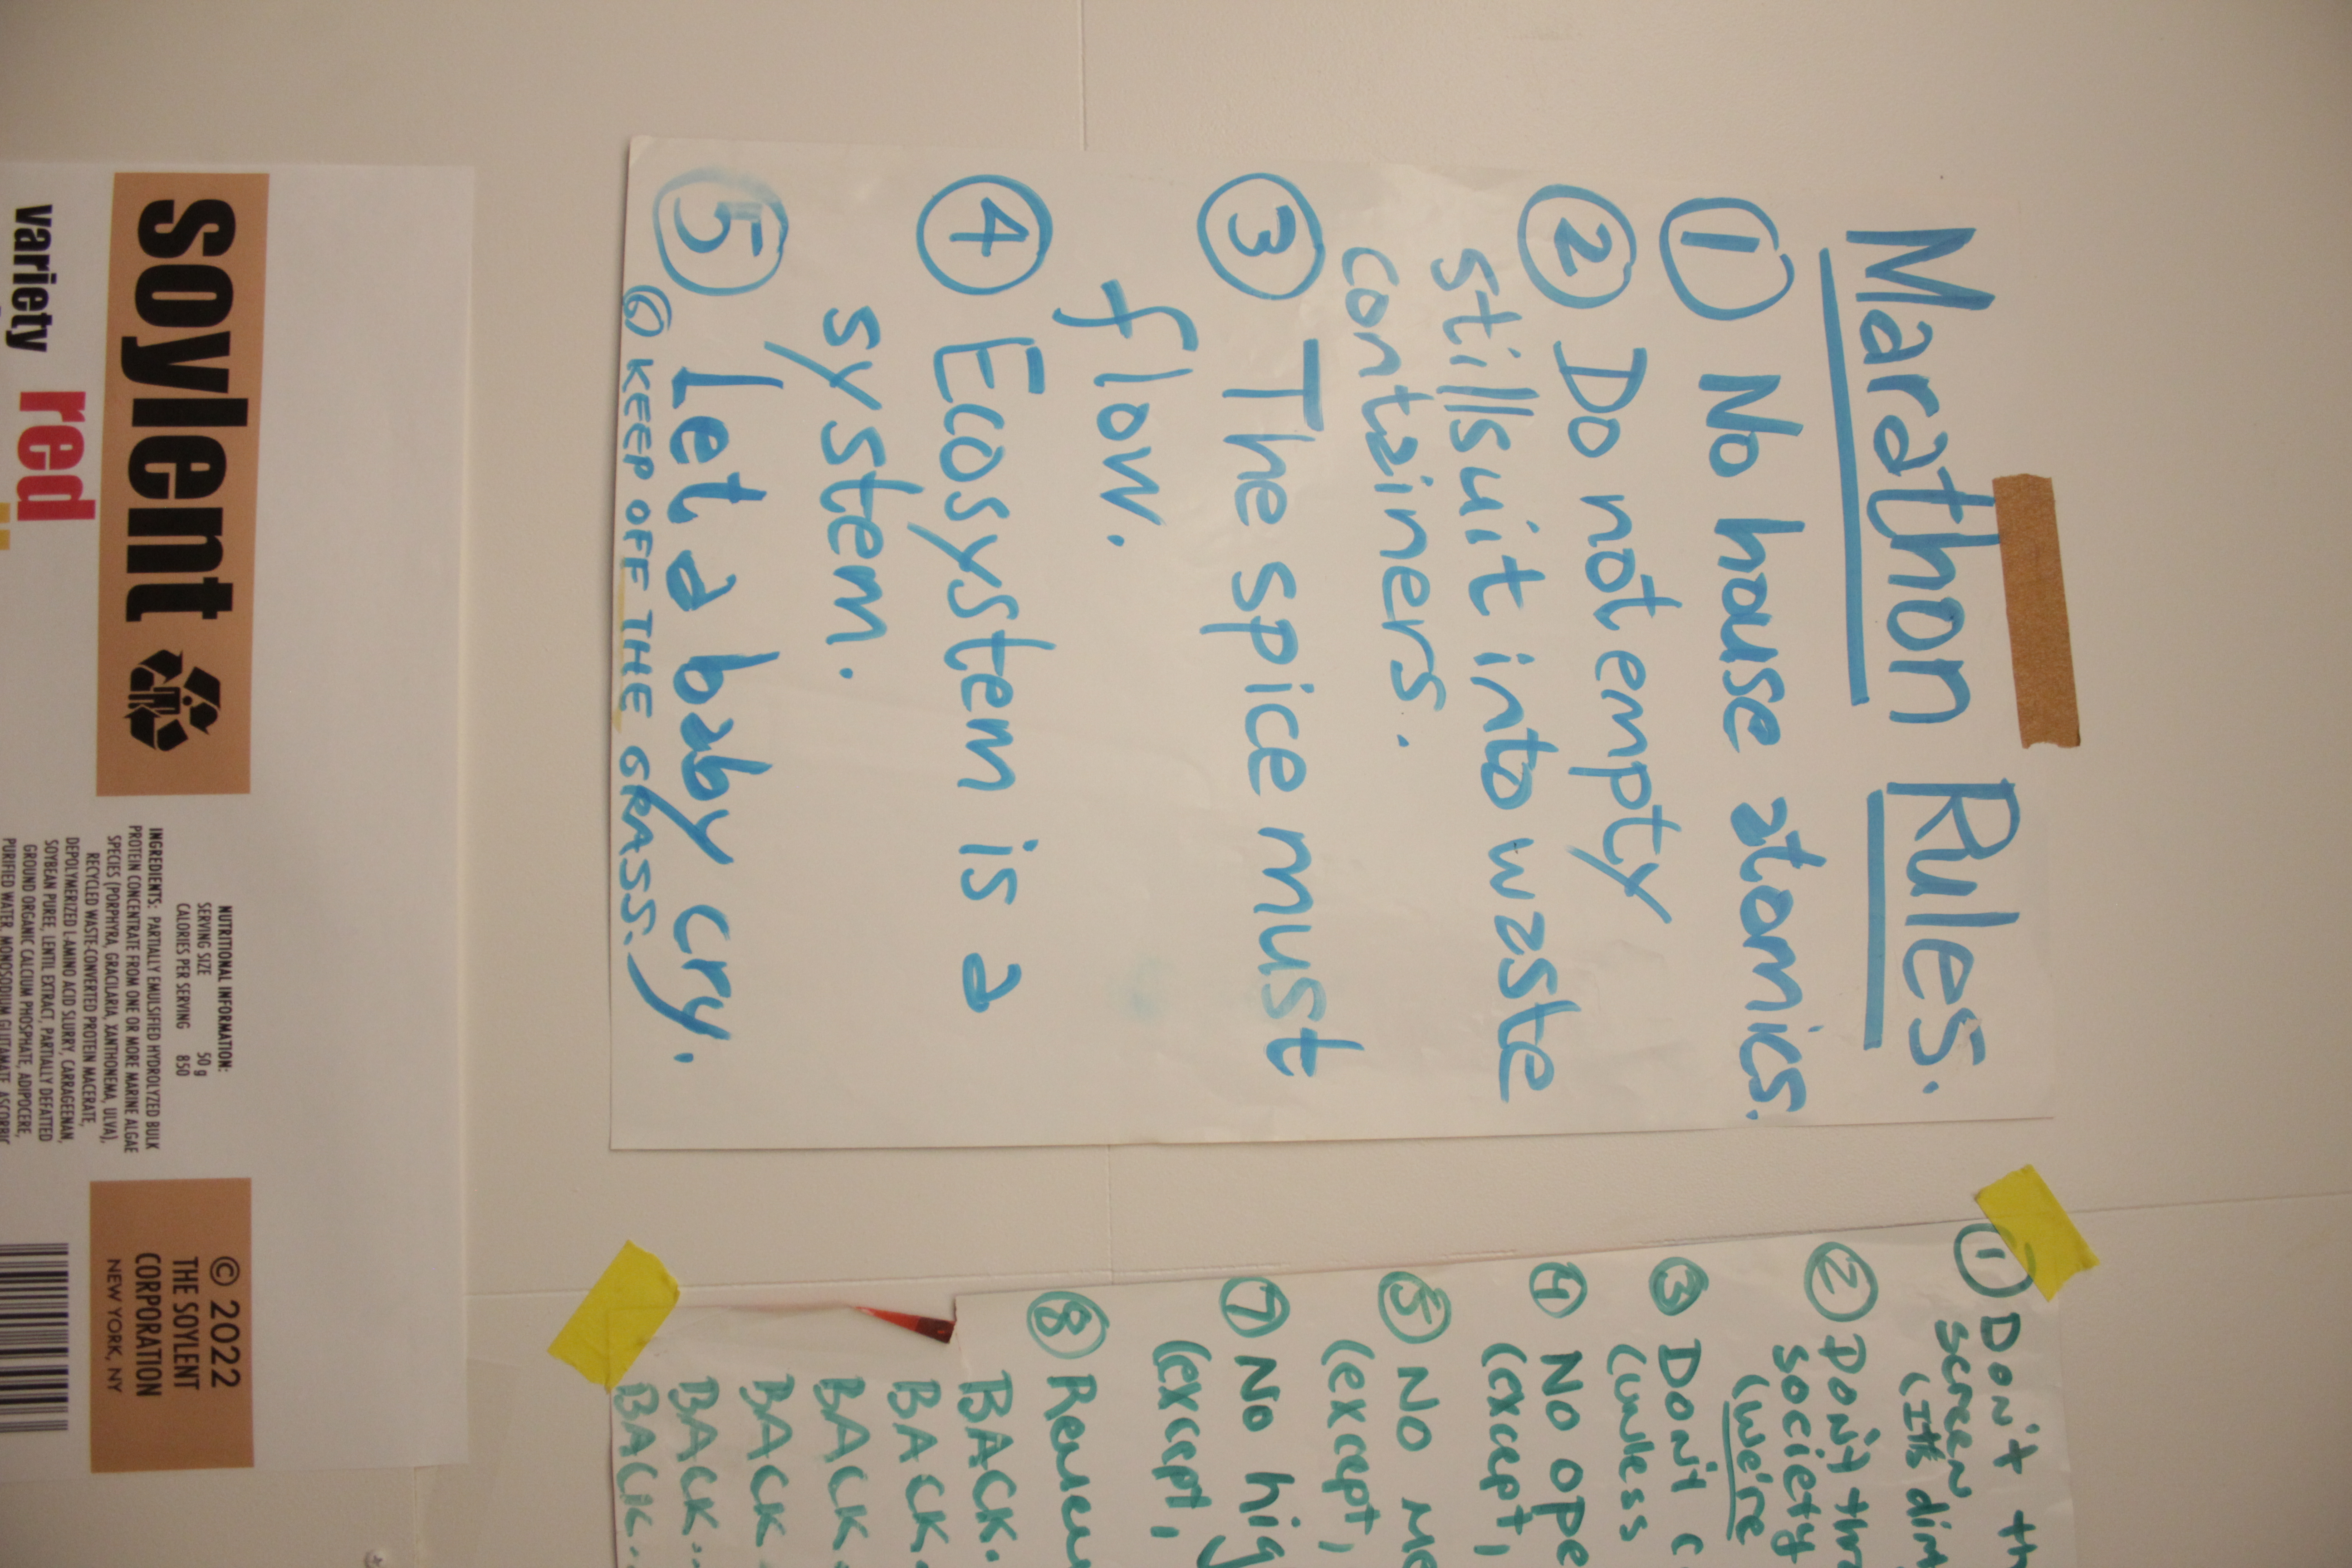 Marathon Rules.
① No house atomics.
② Do not empty
stillsuit into waste
containers.
③ The spice must
flow.
④ Ecosystem is a
system.
⑤ Let a baby cry.
⑥ KEEP OFF THE GRASS.
① Don't th
screen
(It's dim
② Don't thr
society
(we're
③ Don't c
(unless
④ No ope
(except,
⑤ No me
(except,
⑦ No hig
(except,
⑧
BACK.
BACK.
BACK.
BACK
BACK..
BACK..
soylent
variety
red
NUTRITIONAL INFORMATION:
SERVING SIZE 50 g
CALORIES PER SERVING 850
INGREDIENTS: PARTIALLY EMULSIFIED HYDROLYZED BULK
PROTEIN CONCENTRATE FROM ONE OR MORE MARINE ALGAE
SPECIES (PORPHYRA, GRACILARIA, XANTHONEMA, ULVA),
RECYCLED WASTE-CONVERTED PROTEIN MACERATE,
DEPOLYMERIZED L-AMINO ACID SLURRY, CARRAGEENAN,
SOYBEAN PUREE, LENTIL EXTRACT, PARTIALLY DEFATTED
GROUND ORGANIC CALCIUM PHOSPHATE, ADIPOCERE,
PURIFIED WATER, MONOSODIUM GLUTAMATE, ASCORBIC
© 2022
THE SOYLENT
CORPORATION
NEW YORK, NY